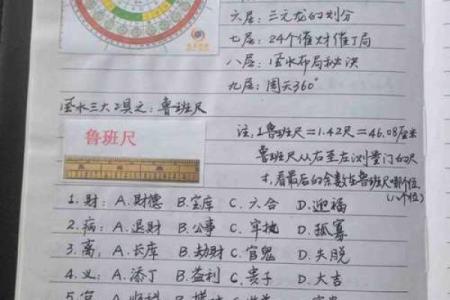 六层:三元龙的划分
七层:24个催财催丁局
八层:风水布局秘决
九层:周天360°
风水三大工具之:鲁班尺
鲁班尺
注,1鲁班尺=1.42尺=46.08厘米
鲁班尺从右至左测量门的尺
寸,看最后的余数在鲁班尺哪个位
(八个位)
1.财:A.财德 B.宝库 C.六合 D.迎福
2.病:A.退财 B.公事 C.牢执 D.孤寡
3.离,A.长库 B.劫财 C.官鬼 D.失脱
4.义:A.添丁 B.益利 C.贵子 D.大吉
5.官:A.顺科